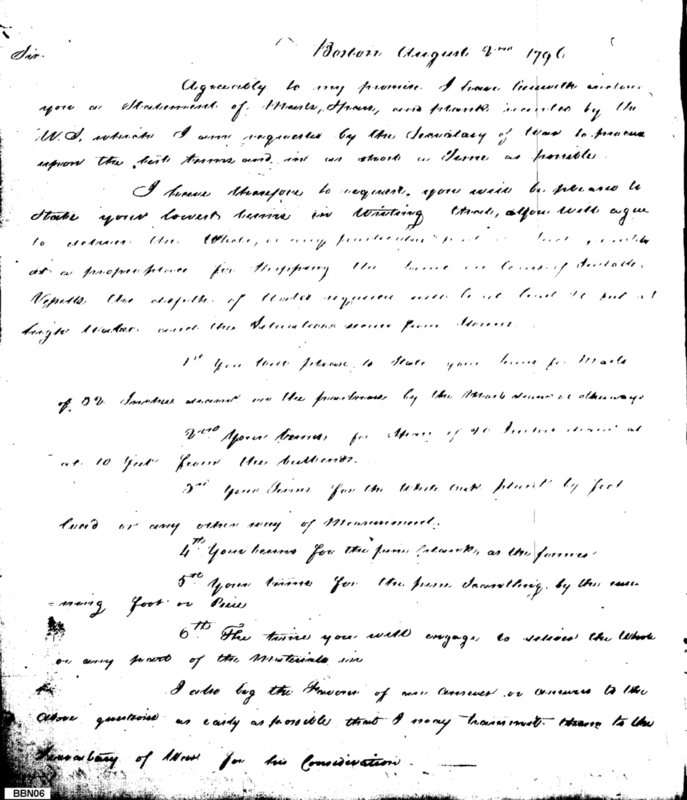 Sir. Boston August 2nd 1796
Agreeably to my promise I have herewith inclosed
you a Statement of Masts, Spars, and plank wanted by the
U.S. which I am requested by the Secretary of War to procure
upon the best terms and in as short a Time as possible
I have therefore to request, you will be pleased to
State your lowest terms in Writing that you will agree
to deliver the Whole, or any particular part
at a proper place for Shipping the same on board of Suitable
Vessells the depth of Water required will be at least 14 feet at
high Water and the Situation secure from Storms
1st You will please to State your terms for Masts
of 32 Inches as the practice by the Mast or otherways
2nd Your terms for Spars of 20 Inches down at
at 10 feet from the buttends.
3rd Your Terms for the White oak plank by foot
load or any other way of Measurement.
4th Your terms for the pine planks, as the former
5th Your terms for the pine Scantling, by the run-
-ning foot or Peice
6th The time you will engage to deliver the Whole
or any part of the Materials in
I also beg the Favour of an answer or answers to the
above questions as early as possible that I may transmit them to the
Secretary of War for his Consideration
BBN06